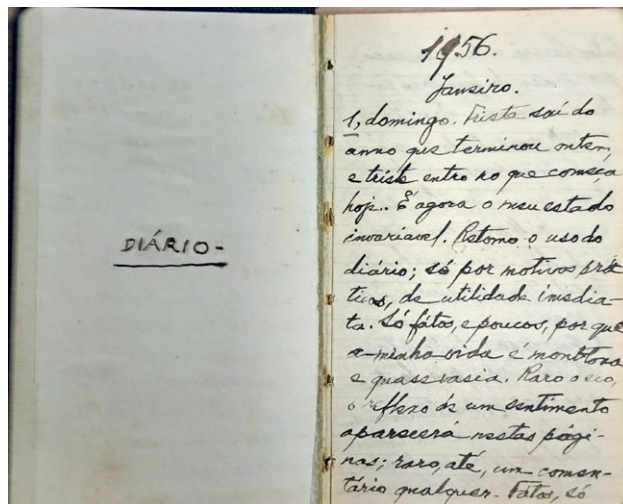 DIÁRIO-
1956.
Janeiro.
1, domingo. Triste saí do
anno que terminou ontem,
e triste entro no que começa
hoje. É agora o meu estado
invariavel. Retomo o uso do
diário; só por motivos prá
ticos, de utilidade imedia-
ta. Só fátos, e poucos, por que
a minha vida é monótona
e quase vasia. Raro o eco,
o reflexo de um sentimento
aparecerá nestas pági-
nas; raro, até, um comen-
tário qualquer. Fátos, só